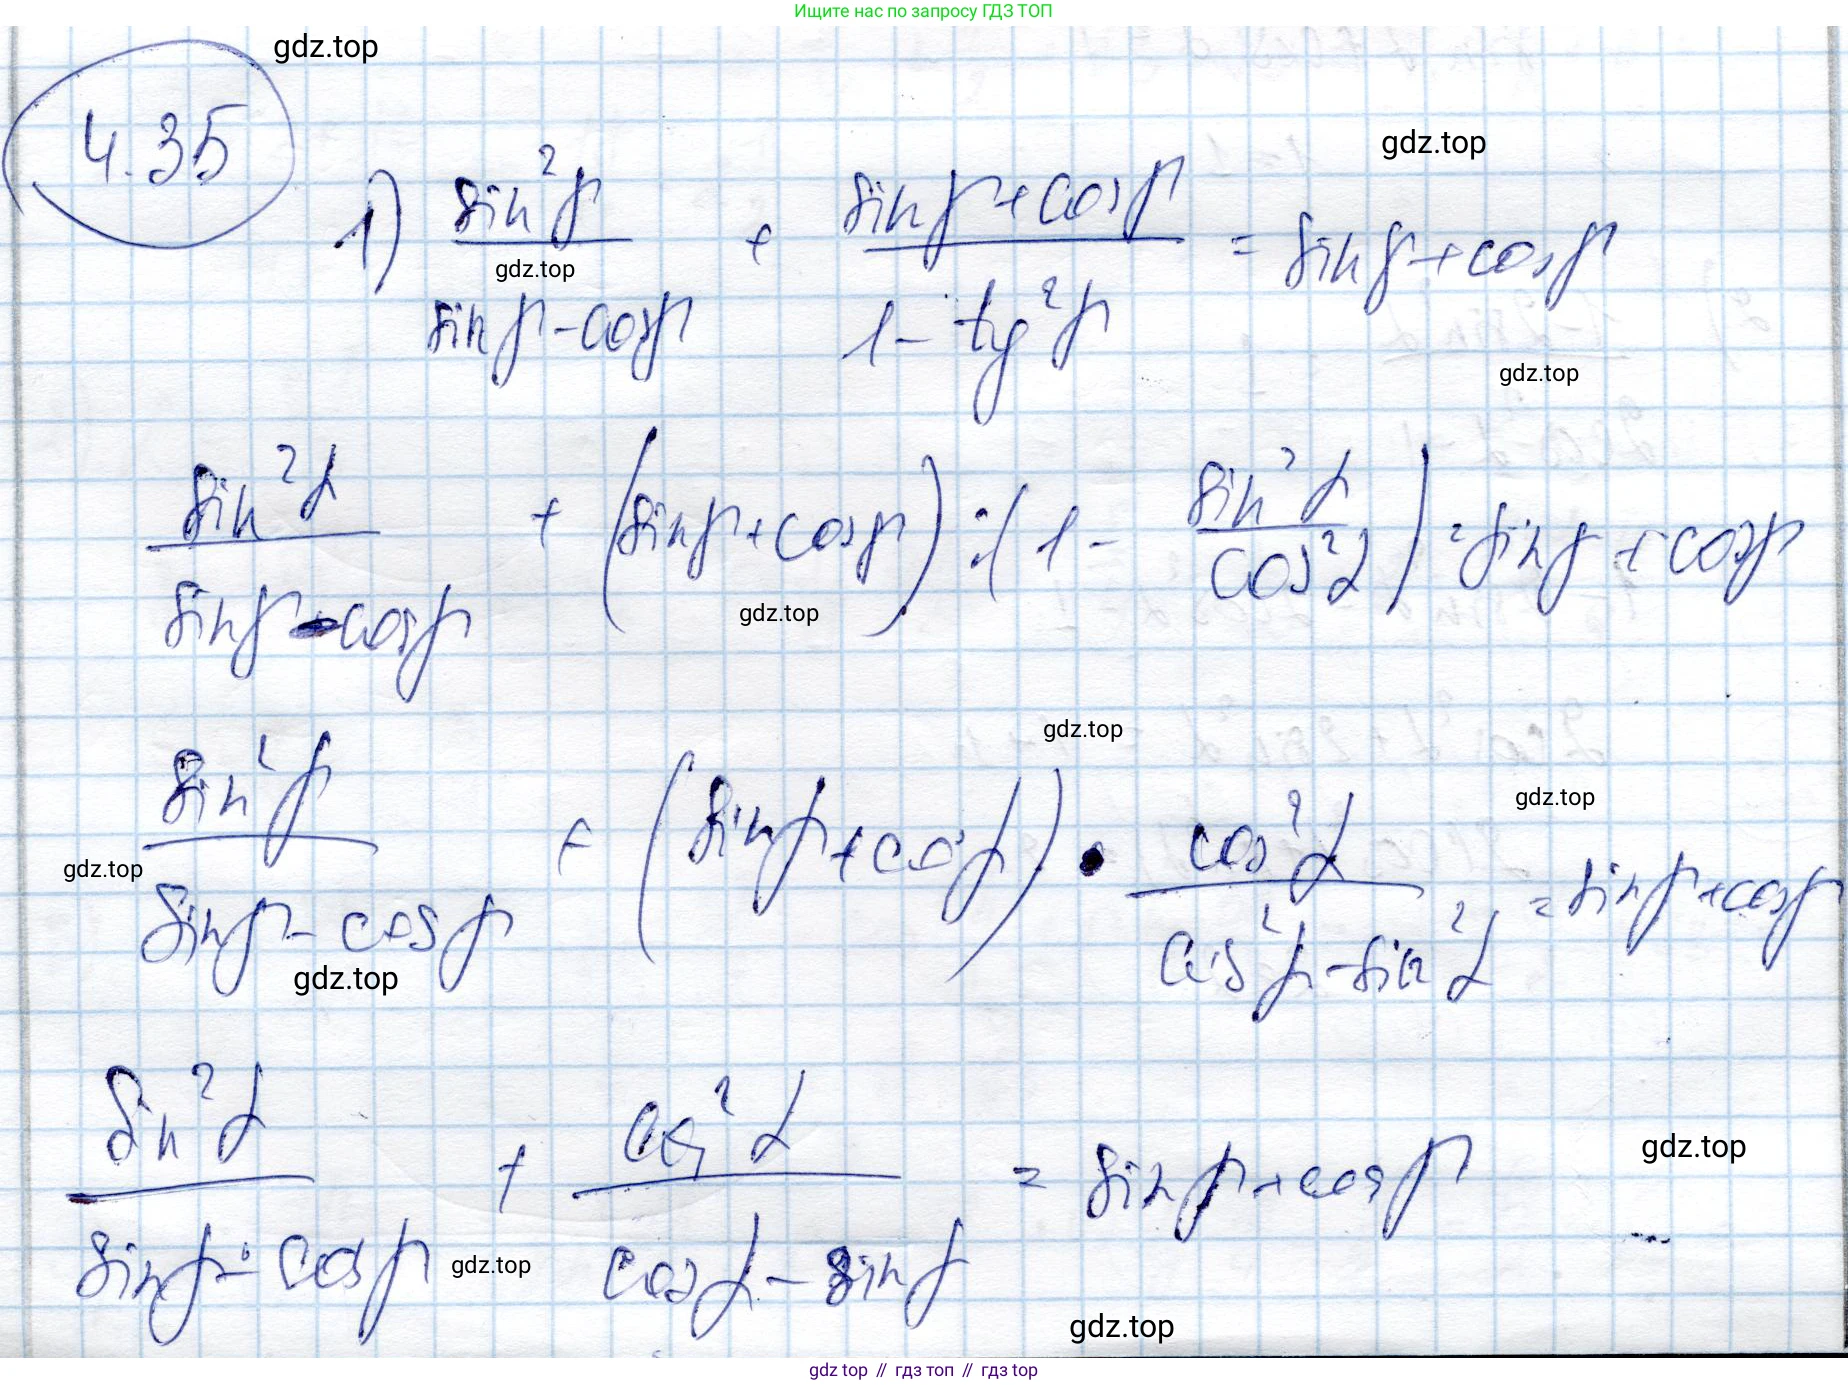 Ищите нас по запросу ГДЗ ТОП
gdz.top
4.35
gdz.top
1) sin²β / (sinβ - cosβ) + (sinβ + cosβ) / (1 - tg²β) = sinβ + cosβ
gdz.top
gdz.top
sin²α / (sinβ - cosβ) + (sinβ + cosβ) : (1 - sin²α / cos²α) = sinβ + cosβ
gdz.top
gdz.top
gdz.top
sin²β / (sinβ - cosβ) + (sinβ + cosβ) • cos²α / (cos²β - sin²α) = sinβ + cosβ
gdz.top
gdz.top
sin²α / (sinβ - cosβ) + cos²α / (cosα - sinβ) = sinβ + cosβ ...
gdz.top
gdz.top
gdz.top
gdz top // гдз топ // gdz top